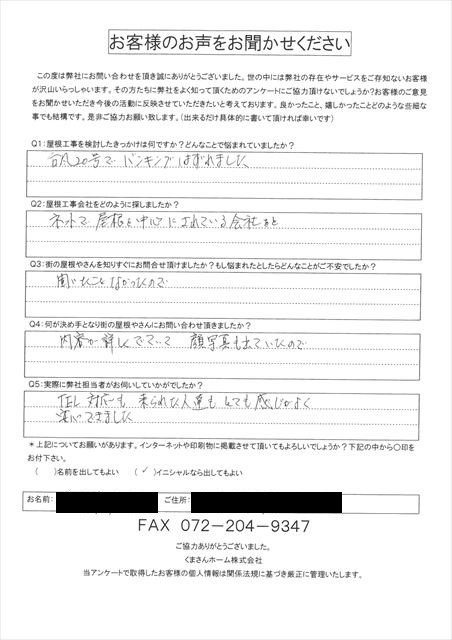 お客様のお声をお聞かせください
この度は弊社にお問い合わせを頂き誠にありがとうございました。世の中には弊社の存在やサービスをご存知ないお客様
が沢山いらっしゃいます。その方たちに弊社をよく知って頂くためのアンケートにご協力頂けないでしょうか?お客様のご意見
をお聞かせいただき今後の活動に反映させていただきたいと考えております。良かったこと、嬉しかったことどのような些細な
事でも結構です。是非ご協力お願い致します。(出来るだけ具体的に書いて頂ければ幸いです)
Q1:屋根工事を検討したきっかけは何ですか?どんなことで悩まれていましたか?
台風20号で バンキングはずれました
Q2:屋根工事会社をどのように探しましたか?
ネットで 屋根を中心にされている会社をと
Q3:街の屋根やさんを知りすぐにお問合せ頂けましたか?もし悩まれたとしたらどんなことがご不安でしたか?
聞いたことなかったので
Q4:何が決め手となり街の屋根やさんにお問い合わせ頂きましたか?
内容が詳しくでていて 顔写真も出ていたので
Q5:実際に弊社担当者がお伺いしていかがでしたか?
TEL対応も 来られた人達も とても感じがよく
安心できました
*上記についてお願いがあります。インターネットや印刷物に掲載させて頂いてもよろしいでしょうか?下記の中から〇印を
お付下さい。
( )名前を出してもよい (✓)イニシャルなら出してもよい
お名前: ご住所:
FAX 072-204-9347
ご協力ありがとうございました。
くまさんホーム株式会社
当アンケートで取得したお客様の個人情報は関係法規に基づき厳正に管理いたします。